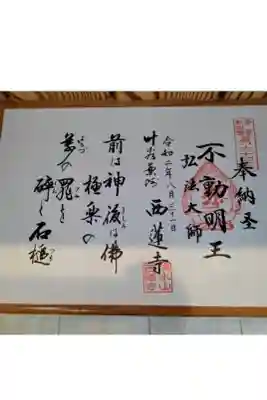 奉納圣
不動明王
弘法大師
令和二年八月三十一日
西蓮寺
前は神後は佛
極楽の
萬の罪を
砕く石槌